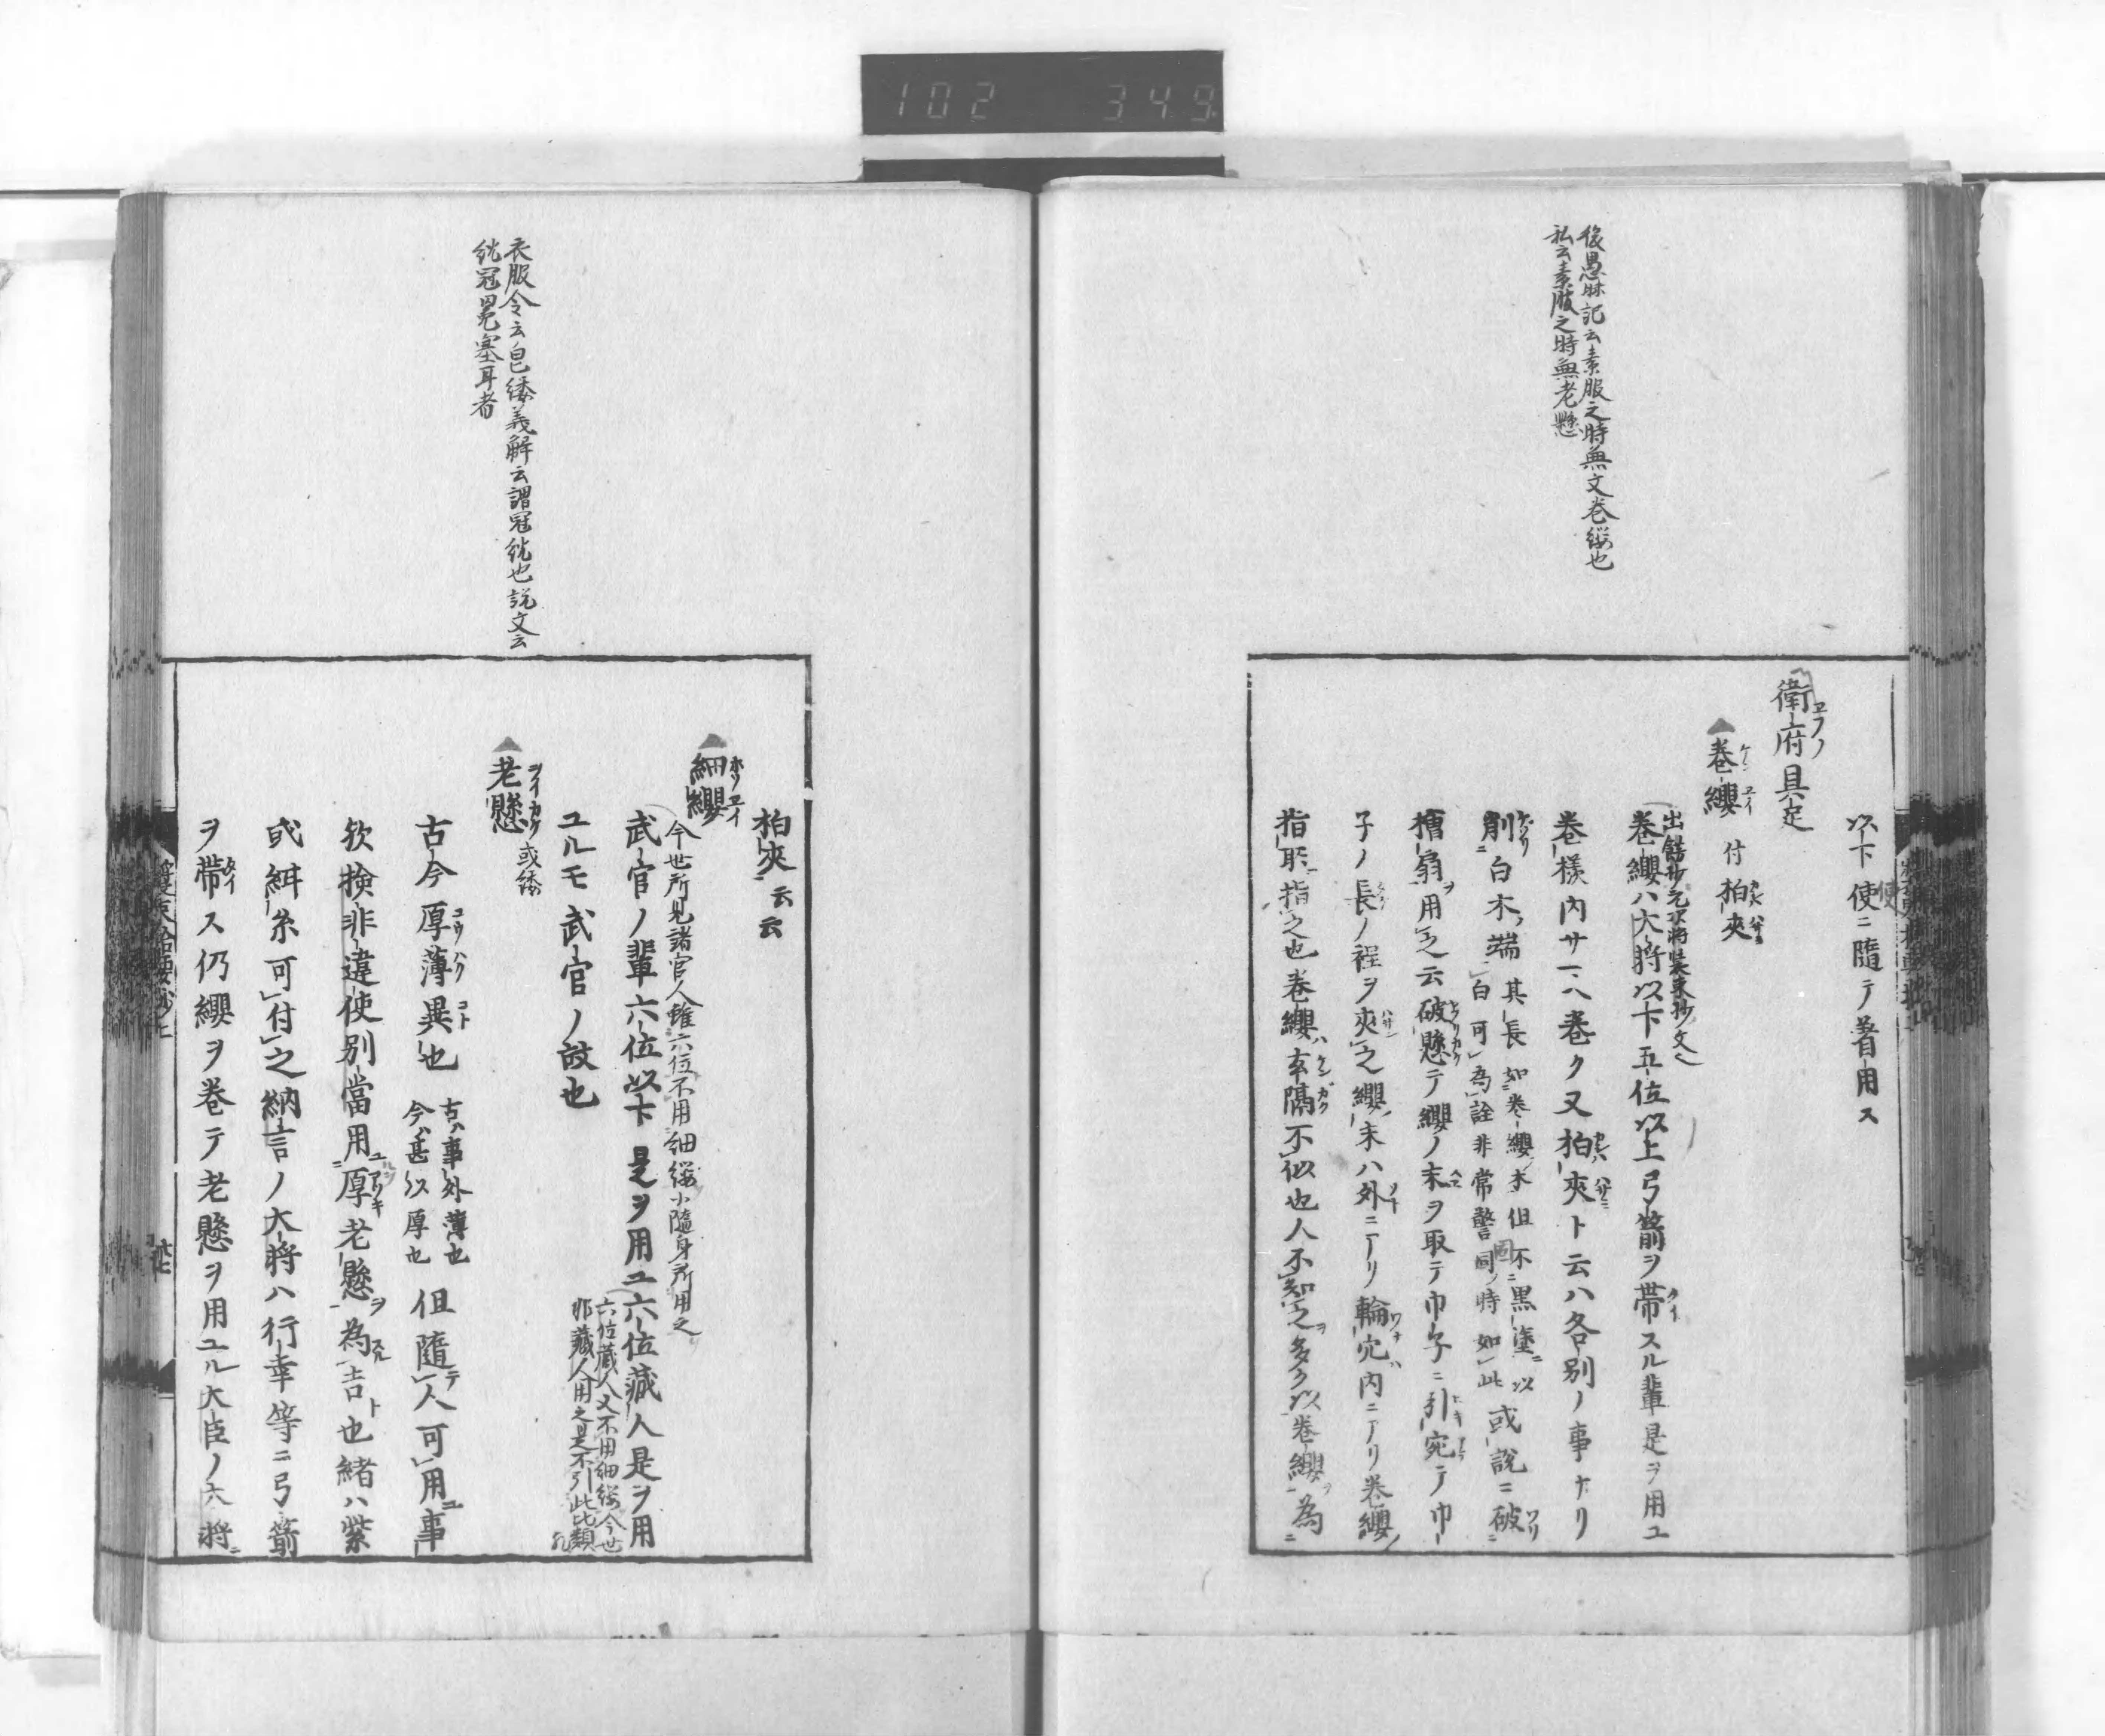 102 349
後愚昧記云素服之時無文巻緌也
私云素服之時無老懸
以下使ニ隨テ着用ス
衛府具足
巻纓 付柏夾
巻纓ハ大将以下五位以上弓箭ヲ帯スル輩是ヲ用ユ
巻様内サマヘ巻ク又柏夾ト云ハ各別ノ事ナリ
削白木端其長如巻纓木但不黒塗以
白可為詮非常警固時如此或説ニ破
檜扇用之云破懸テ纓ノ末ヲ取テ巾子ニ引宛テ巾
子ノ長ノ程ヲ夾之纓末ハ外ニアリ輪穴内ニアリ巻纓
指所指之也巻纓玄隔不似也人不知之多以巻纓為
柏夾云云
衣服令云皀緌義解云謂冠紞也説文云
紞冠冕塞耳者
細纓
今世所見諸官人雖六位不用細緌小隨身所用之
武官ノ輩六位以下是ヲ用ユ六位蔵人是ヲ用
六位蔵人又不用細緌今世
非蔵人用之是不引此比類
ユルモ武官ノ故也
老懸 或緌
古今厚薄異也 古ハ事外薄也
今ハ甚以厚也 但隨人可用事
欤検非違使別當用厚老懸為吉也緒ハ紫
或緋糸可付之納言ノ大将ハ行幸等ニ弓箭
ヲ帯ス仍纓ヲ巻テ老懸ヲ用ユル大臣ノ大将